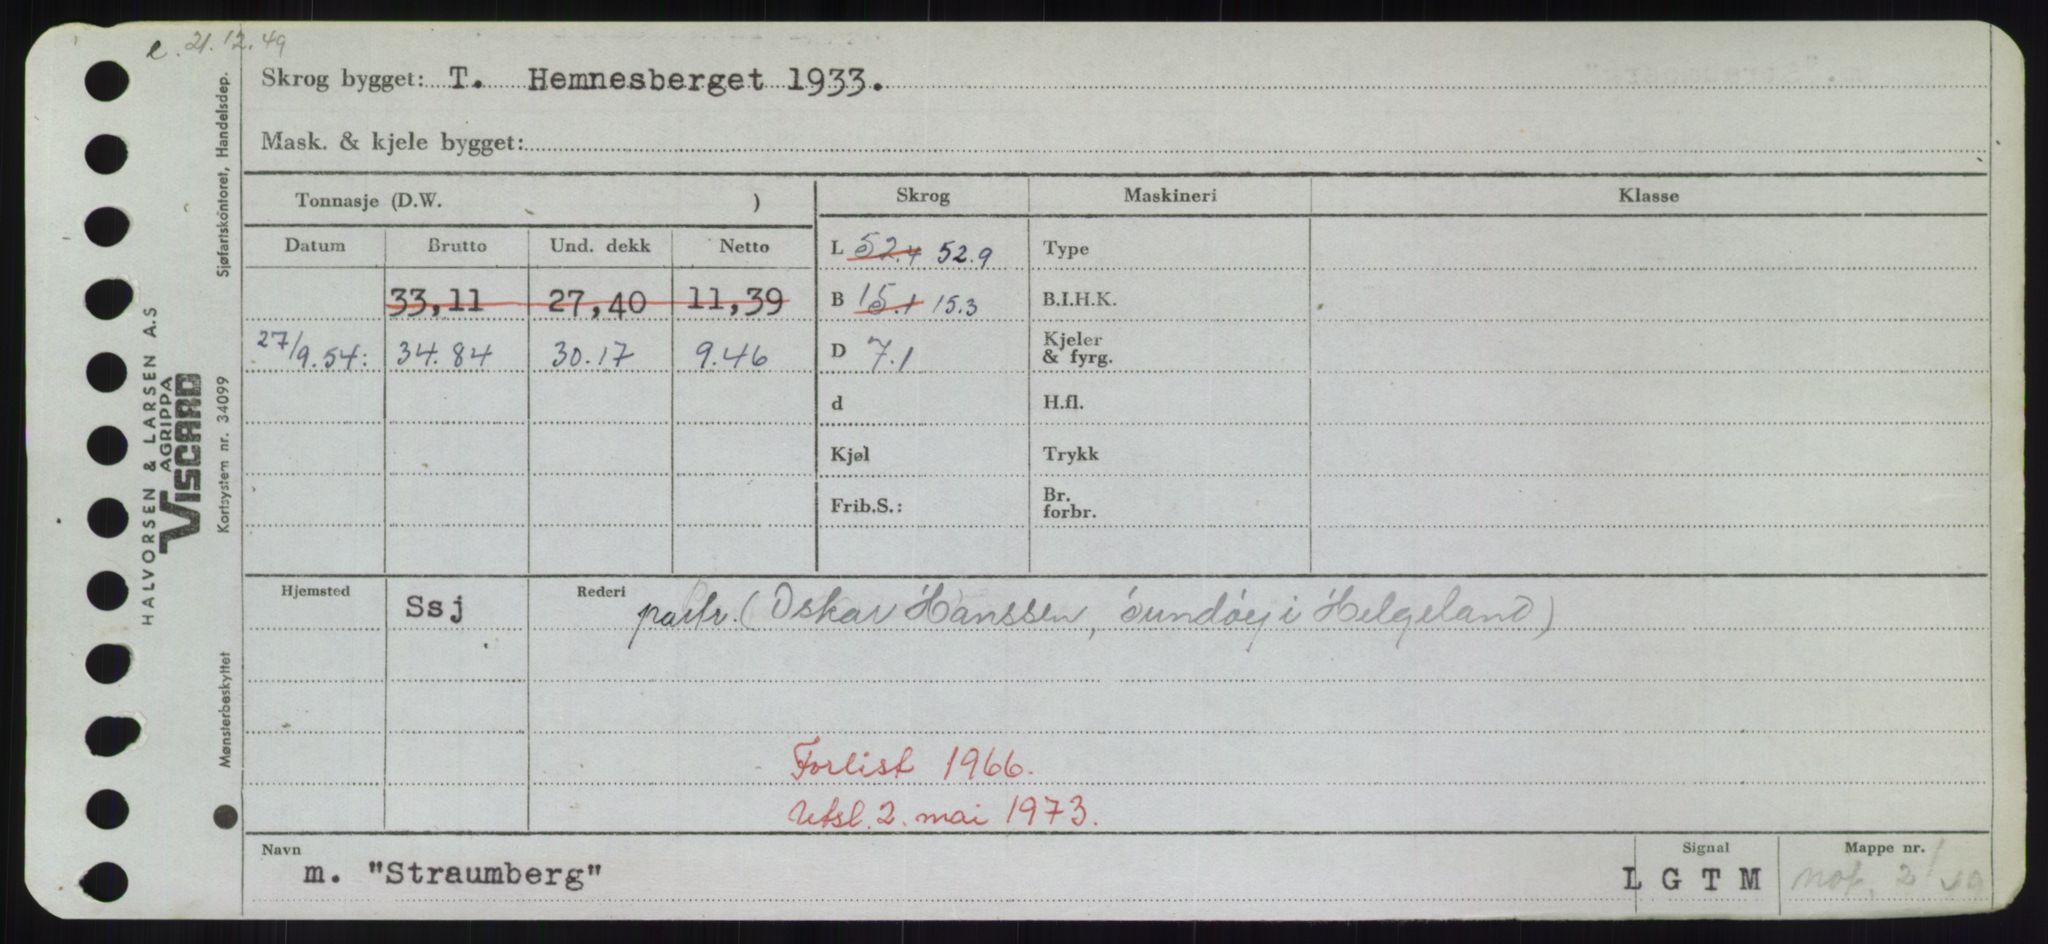 e. 21.12.49
Skrog bygget: T. Hemnesberget 1933.
Mask. & kjele bygget:
Tonnasje (D.W. ) Skrog Maskineri Klasse
Datum Brutto Und. dekk Netto L 52.4 52.9 Type
33,11 27,40 11,39 B 15.1 15.3 B.I.H.K.
27/9.54: 34.84 30.17 9.46 D 7.1 Kjeler & fyrg.
d H.fl.
Kjøl Trykk
Frib.S.: Br. forbr.
Hjemsted Ssj Rederi partr. (Oskar Hanssen, Sundøy i Helgeland)
Forlist 1966.
Utsl. 2. mai 1973.
Navn Signal Mappe nr.
m. "Straumberg" L G T M not. 2/49
HALVORSEN & LARSEN A.S
AGRIPPA
VISCARD
Sjøfartskontoret, Handelsdep.
Kortsystem nr. 34099
Mønsterbeskyttet